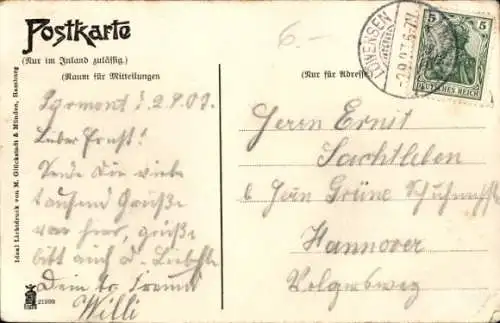 Postkarte
(Nur im Inland zulässig.)
(Raum für Mitteilungen
Nur für Adresse)
6.-
5 5
DEUTSCHES REICH
Pyrmont d. 2.9.07.
Lieber Ernst!
Sende Dir viele
tausend Grüße
von hier, grüße
bitte auch d. Liebste
Dein Freund
Willi
Herrn Ernst
Sachtleben
b. Herrn Grüne
Hannover
Volgersweg
Ideal Lichtdruck von M. Glückstadt & Münden, Hamburg